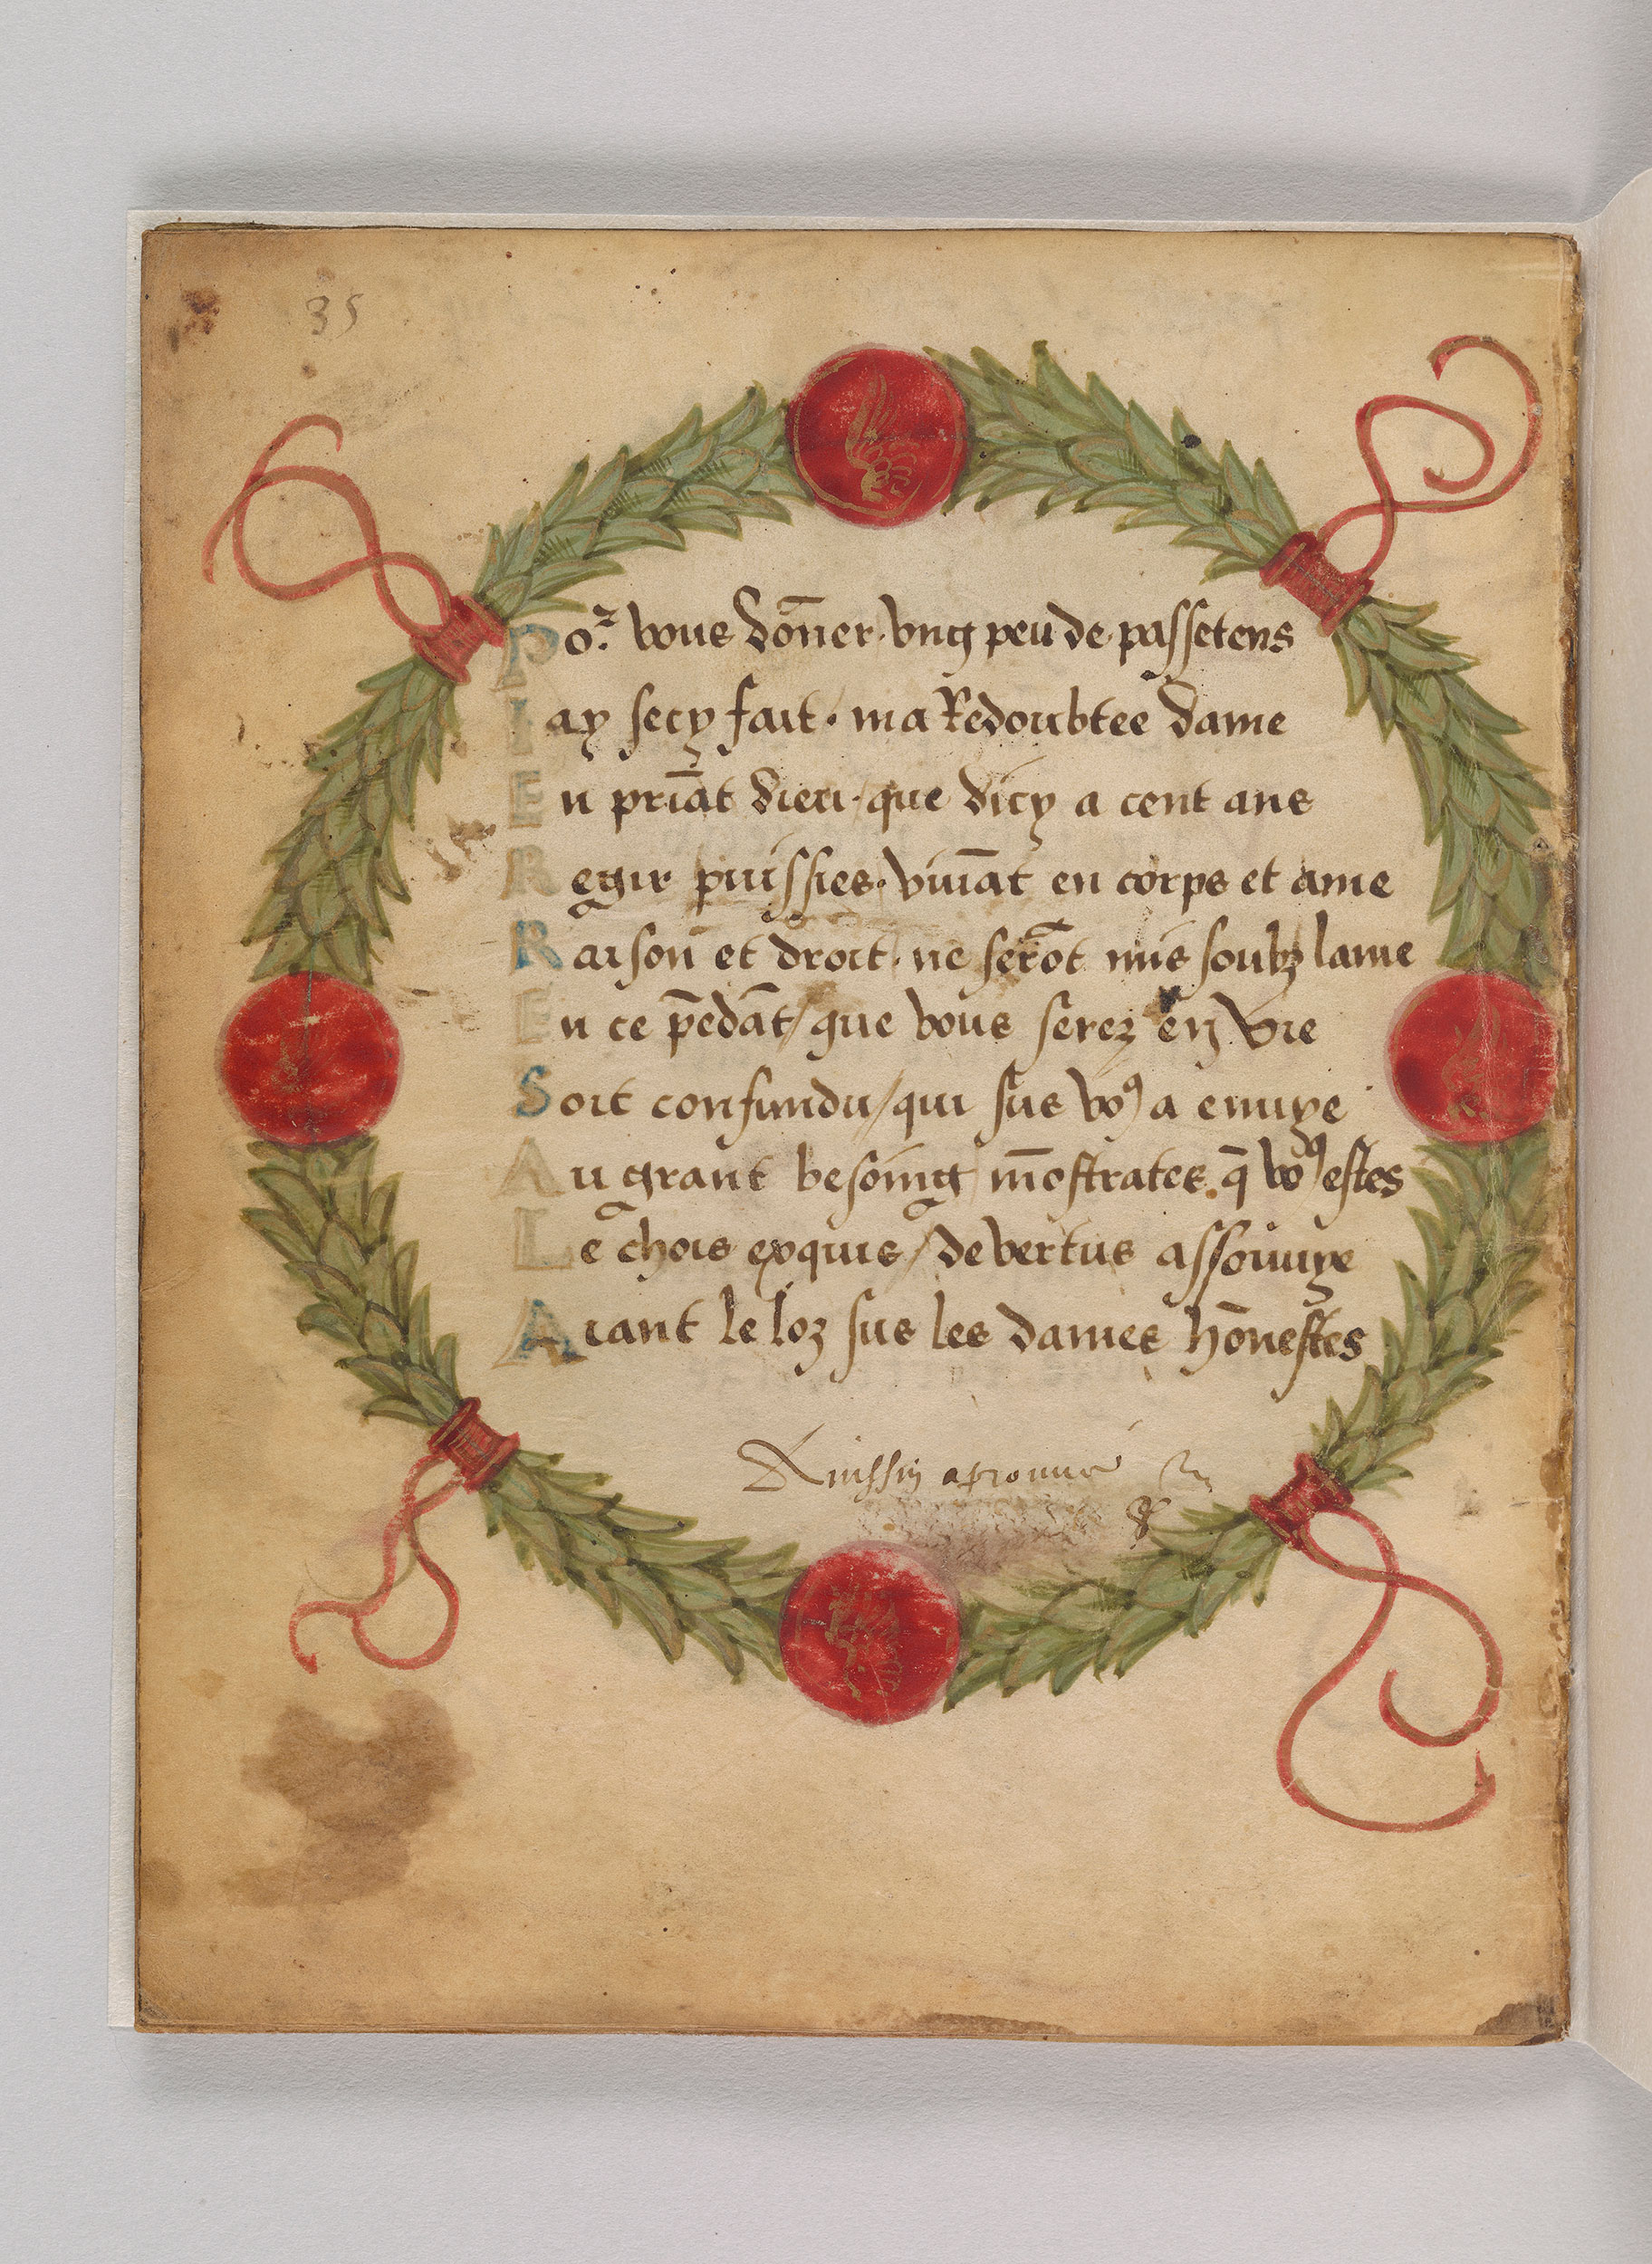 35
Po.ᷣ vous dōner · vng peu de passetens
Jay secy fait · ma Redoubtee dame
En priāt dieu · que dicy a cent ans
Regir puissies · viuāt en corps et ame
Raison et droit · ne serōt mis soubz lame
En ce pēdāt / que vous serez en vie
Soit confundu / qui sus voꝰ a enuye
Au grant besoing m̄ostrates q̄ voꝰ estes
Le chois exquis / de vertus assouuye
Aiant le loz sus les dames hōnestes